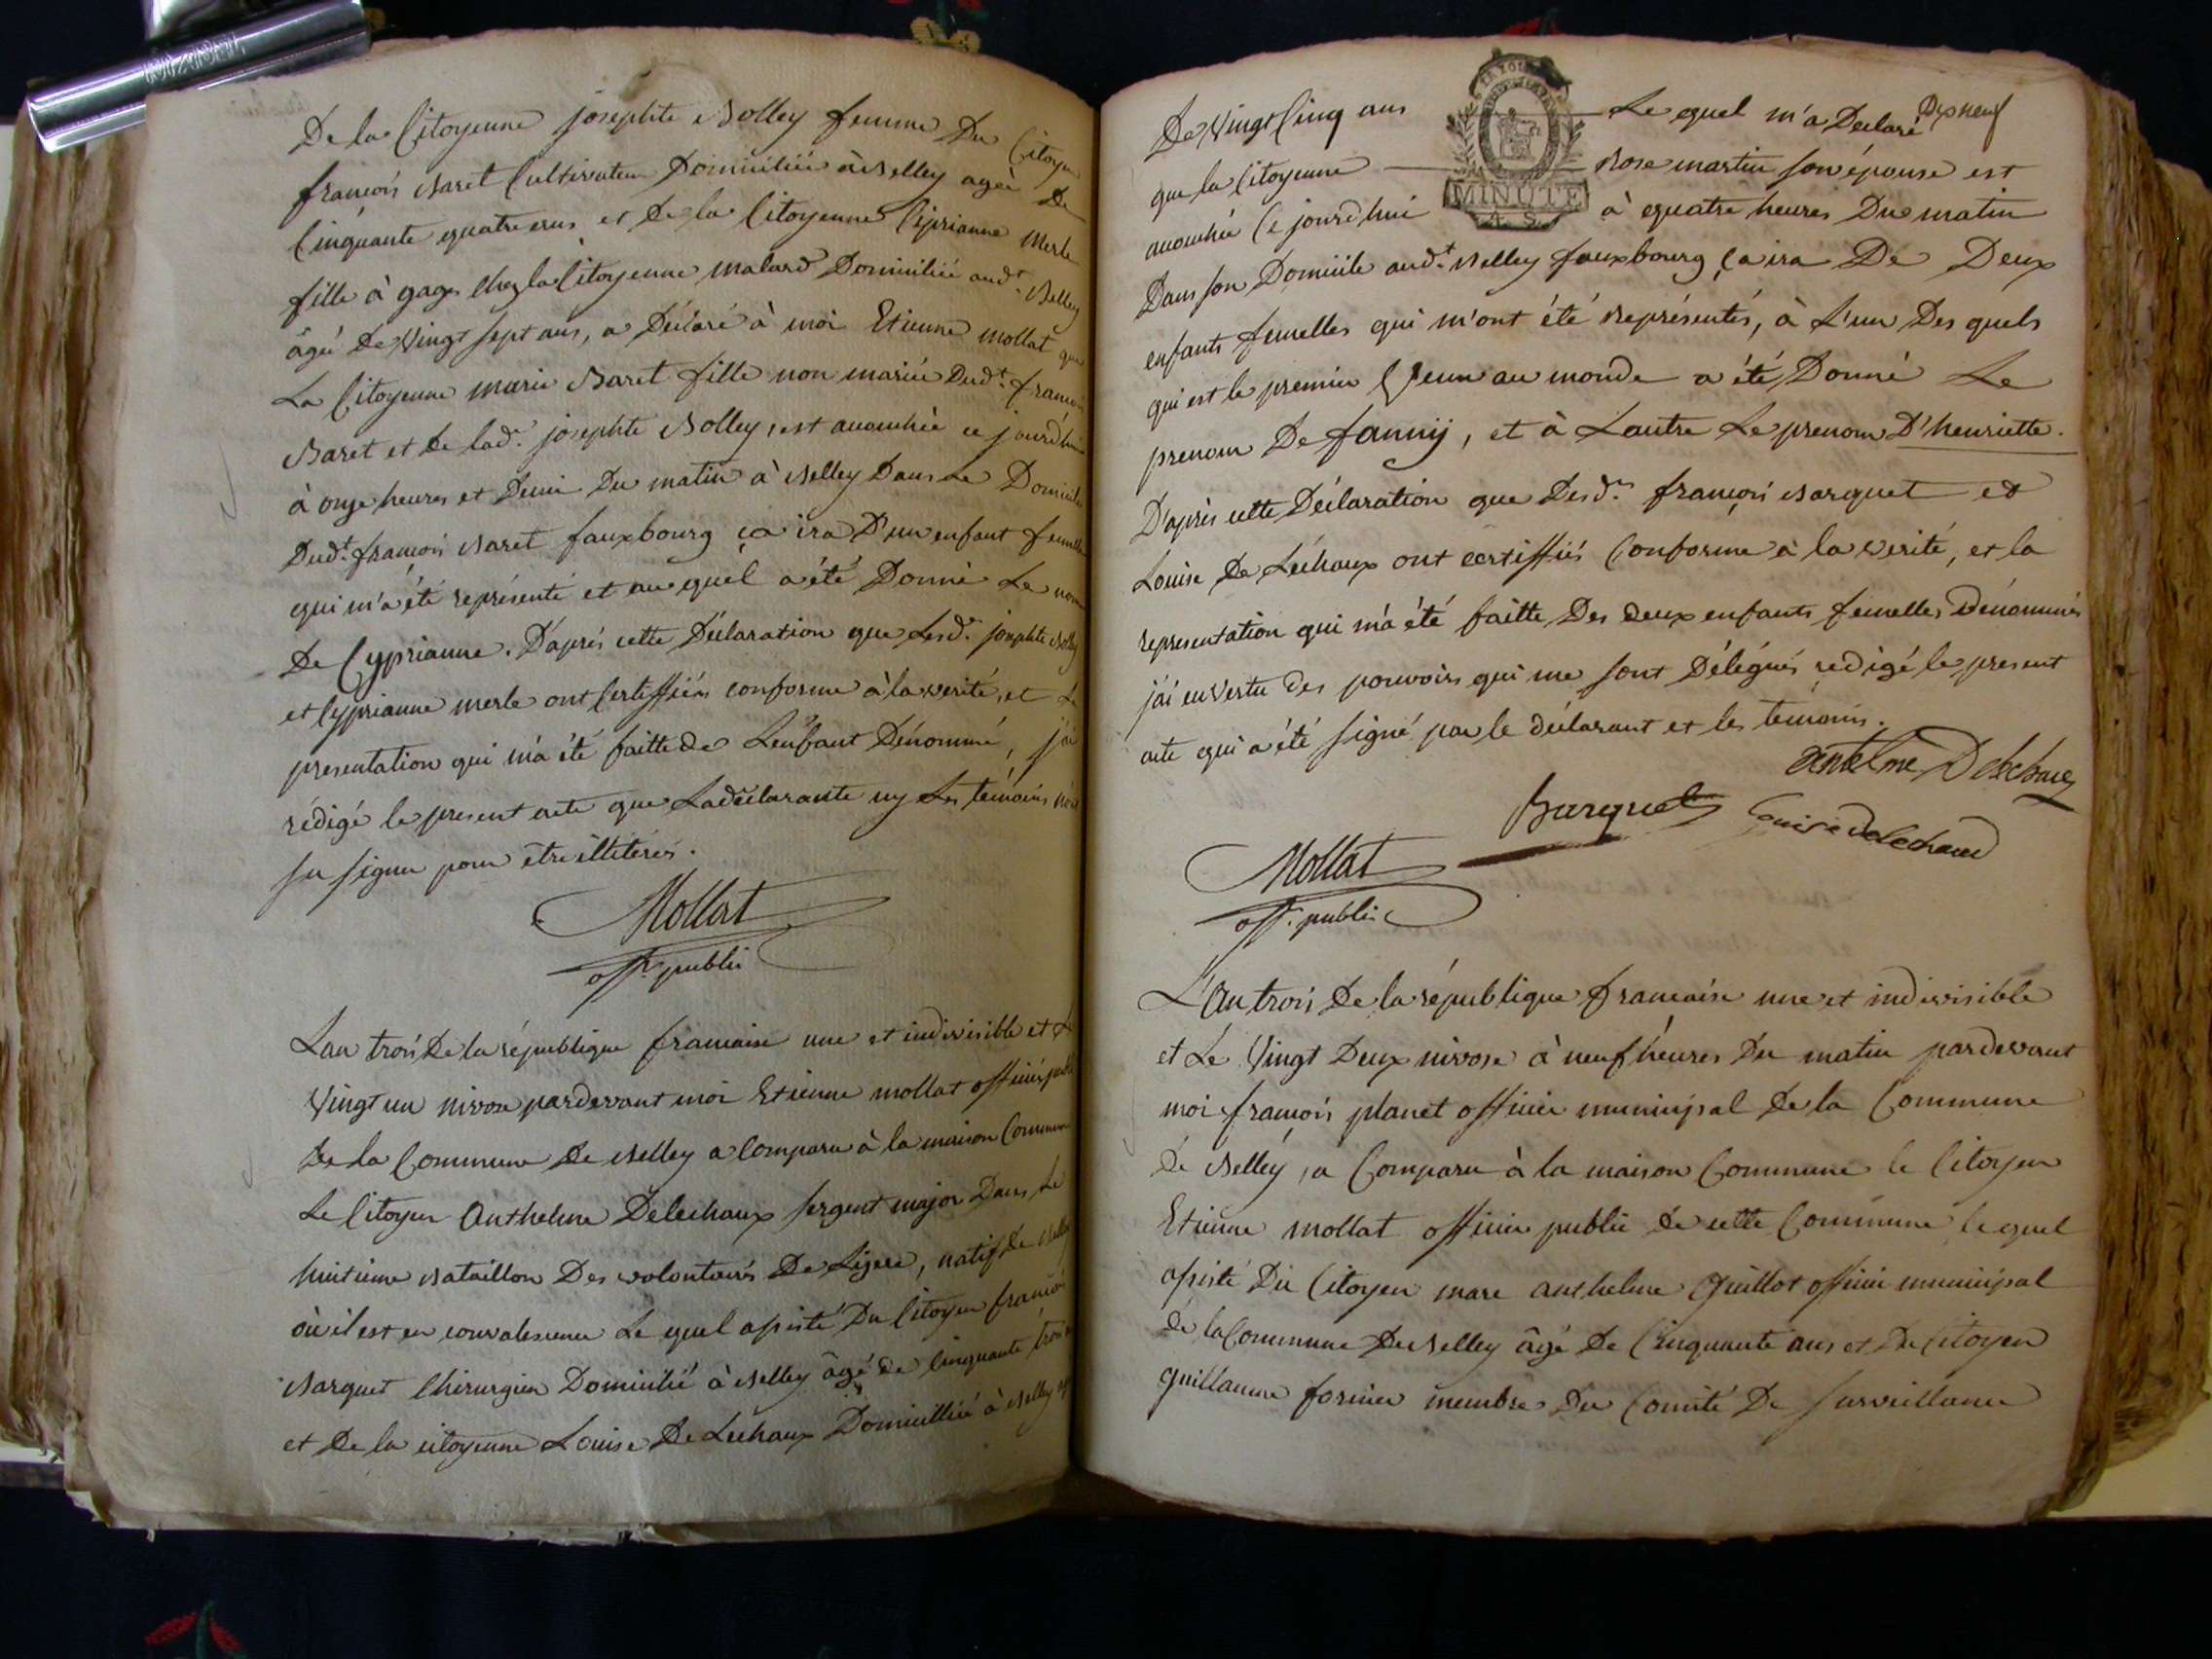 De la Citoyenne josephte Bolley femme Du Citoyen
françois Baret Cultivateur Domiciliée à Belley agée De
Cinquante quatre ans et De la Citoyenne Ciprianne Merle
fille à gage chez la Citoyenne malard Domiciliée aud.t Belley
âgée De Vingt sept ans, a Déclaré à moi Etienne mollat que
La Citoyenne marie Baret fille non mariée Dud.t françois
Baret et De lad.e josephte Bolley, est accouchée ce jourd'hui
à onze heures et Demi Du matin à Belley Dans Le Domicile
Dud.t françois Baret fauxbourg ça ira D'un enfant femelle
qui m'a été représenté et au quel a été Donné Le nom
De Cyprianne. D'après cette Déclaration que Lesd.e josephte Bolley
et Cyprianne merle ont Certiffiées conforme à la verité, et La
presentation qui m'a été faitte de L'enfant Dénommé, j'ai
rédigé le present acte que La déclarante ny Les témoins n'ont
su signer pour être illiterés.
Mollat
off. public
L'an trois De la république francaise une et indivisible et Le
Vingt un nivose pardevant moi Etienne mollat officier public
De la Commune De Belley a Comparu à la maison Commune
Le Citoyen Anthelme Delechaux sergent major Dans Le
huitieme Bataillon Des volontaires De Lizere, natif de Belley
où il est en convalescence Le quel assisté Du Citoyen françois
Barquet Chirurgien Domicilié à Belley âgé de Cinquante trois
et De la citoyenne Louise De Lechaux Domicilliée à Belley
De Vingt Cinq ans Le quel m'a Declaré Dix neuf
que la Citoyenne Rose martin son épouse est
MINUTE
4. S.
accouchée Ce jourd'hui à quatre heures Du matin
Dans son Domicile aud.t Belley fauxbourg ça ira De Deux
enfants femelles qui m'ont été représentés, à L'un Des quels
qui est le premier Venu au monde a été Donné Le
prenom De fanny, et à Lautre Le prenom D'henriette.
D'après cette Déclaration que Lesd.e françois Barquet et
Louise De Lechaux ont certiffiés Conforme à la verité, et la
représentation qui m'a été faitte Des deux enfants femelles Dénommés
j'ai en Vertu des pouvoirs qui me sont Délégués redigé le present
acte qui a été signé par le déclarant et les temoins.
antelme Delechaux
Barquet Louise delechaux
Mollat
off. public
L'An trois De la république francaise une et indivisible
et Le Vingt Deux nivose à neuf heures Du matin pardevant
moi françois planet officier municipal De la Commune
de Belley, a Comparu à la maison Commune le Citoyen
Etienne mollat officier public de cette Commune le quel
assisté Du Citoyen marc anthelme Guillot officier municipal
de la Commune De Belley âgé De Cinquante ans et Du Citoyen
guillaume fornier membre Du Comité De Surveillance